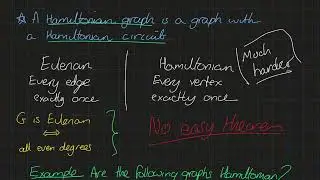 ☆ A Hamiltonian graph is a graph with
a Hamiltonian circuit
Eulerian
Every edge
exactly once
Hamiltonian
Every vertex
exactly once
(Much
harder)
G is Eulerian
⟺
all even degrees
No easy theorem
Example Are the following graphs Hamiltonian?